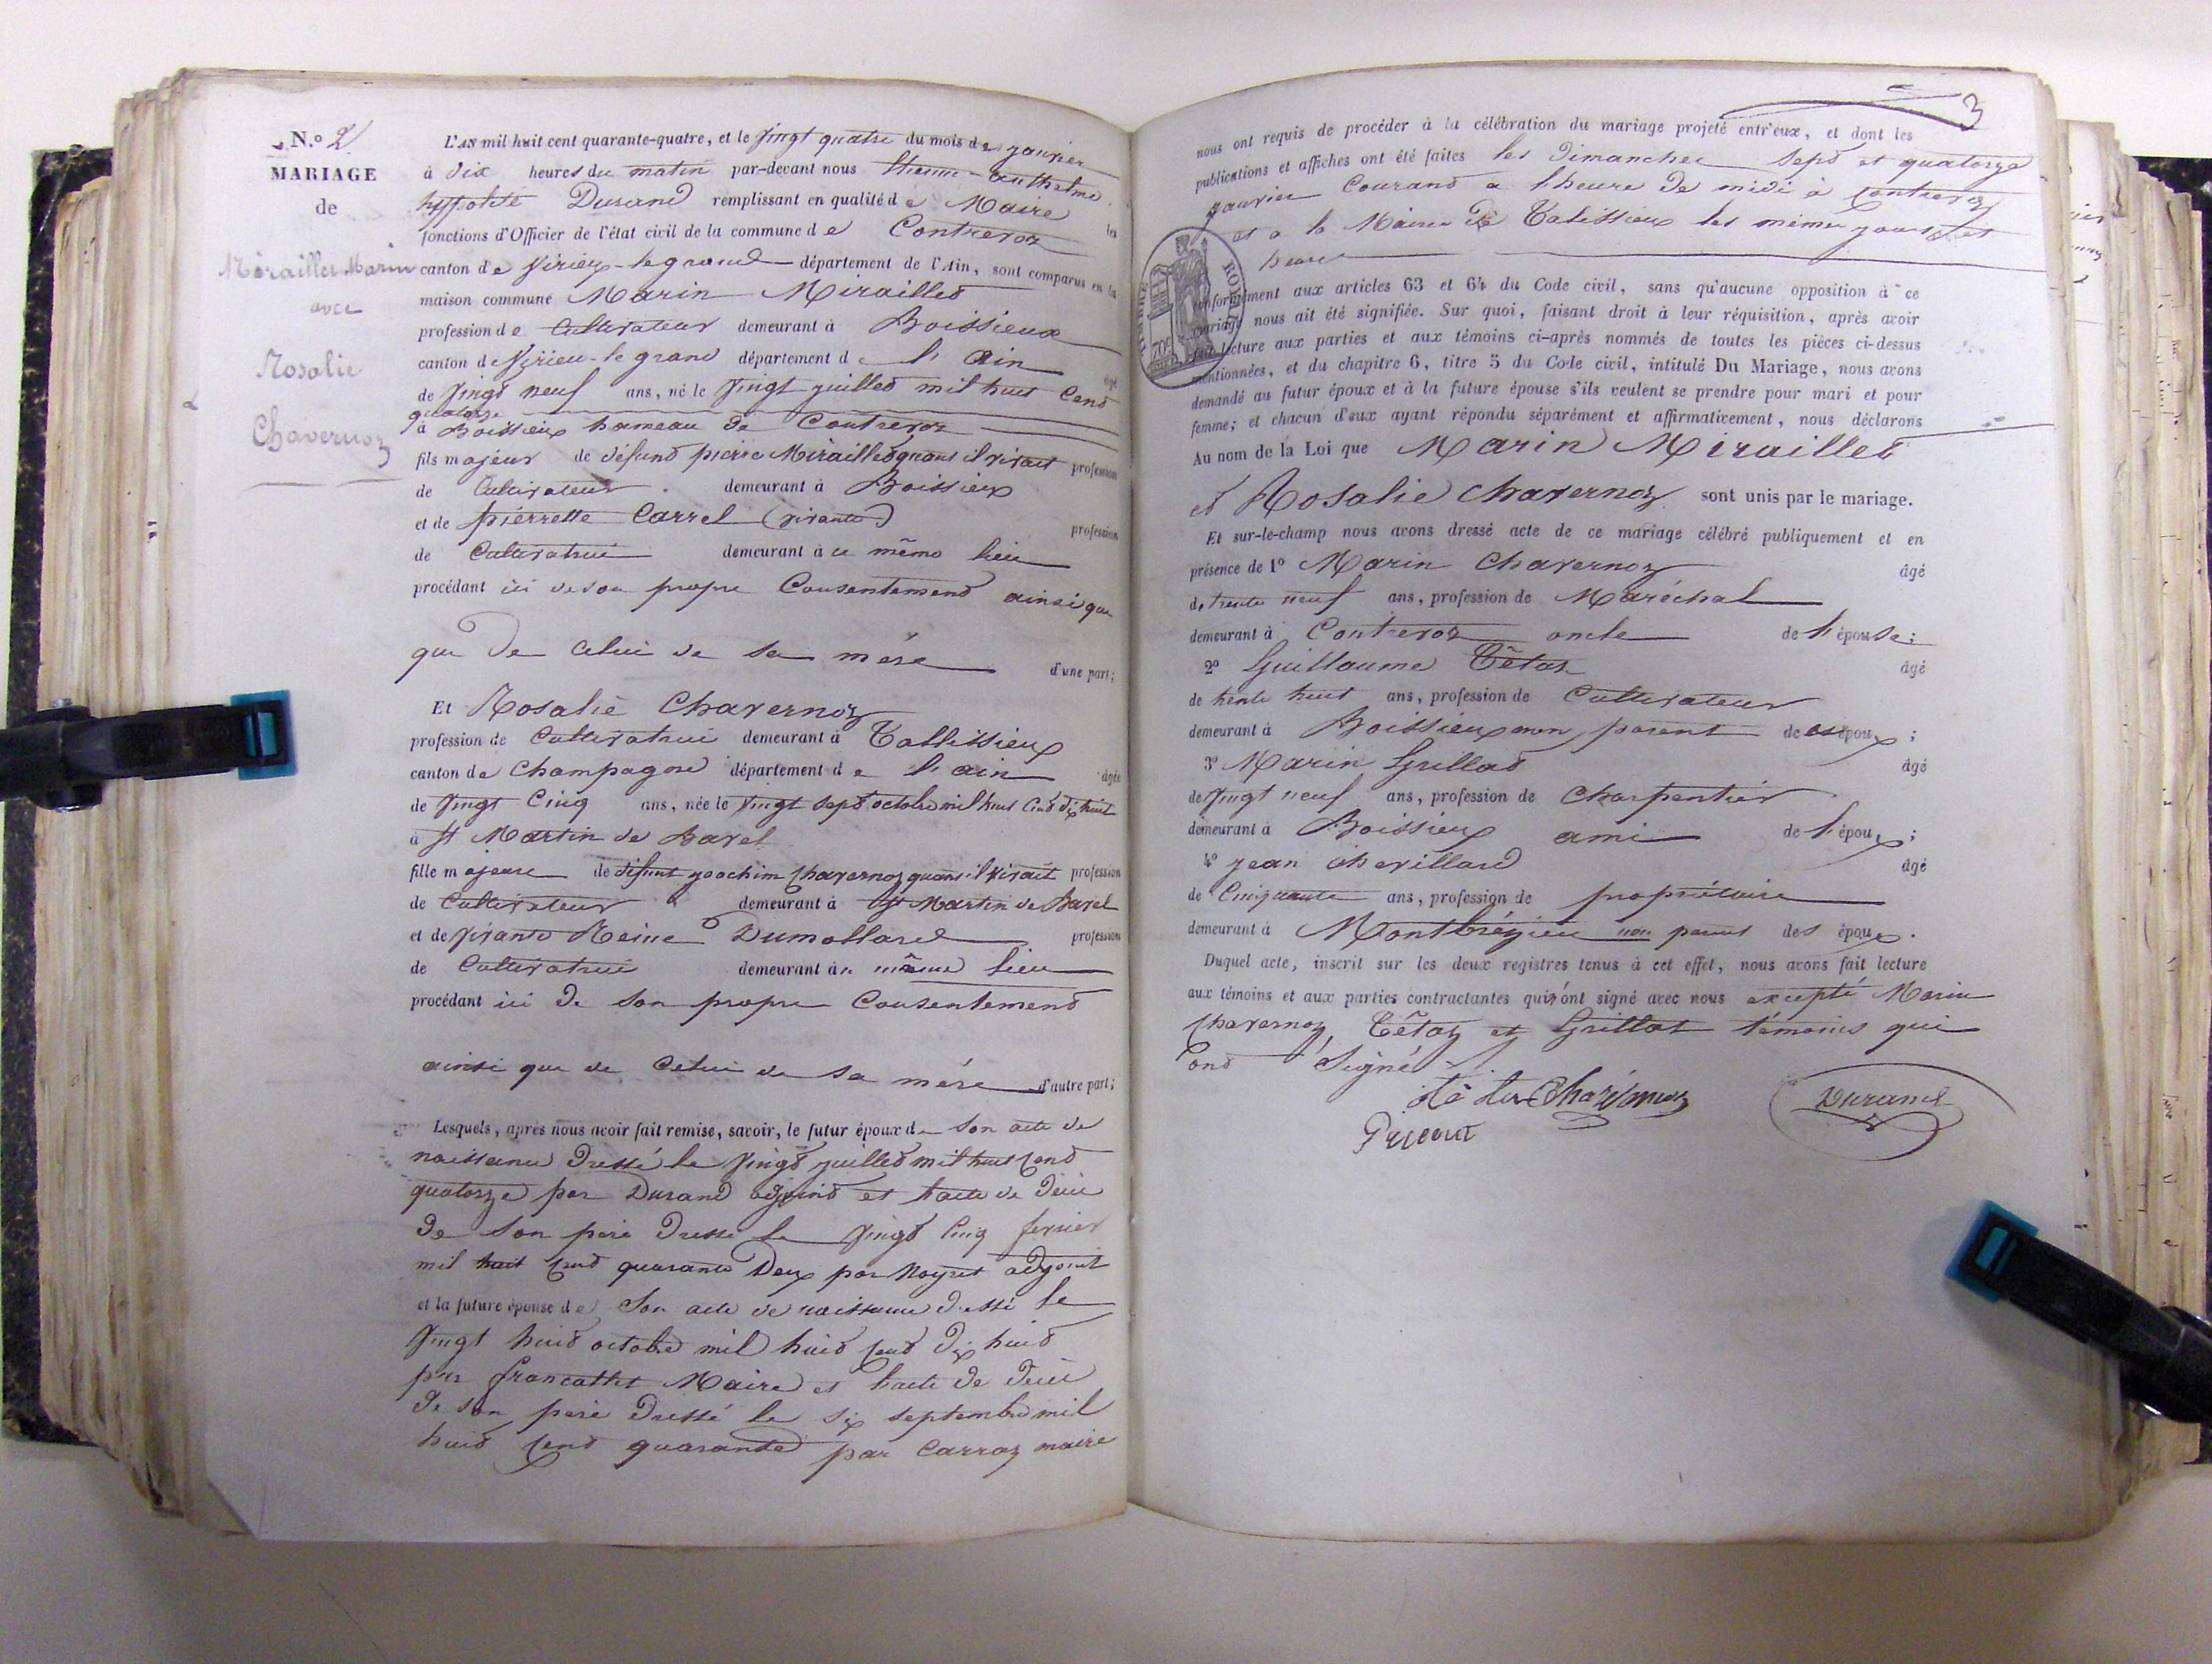 N.º 2
MARIAGE
de
Mirailles Marin
avec
Rosalie
Chavernoz
L'AN mil huit cent quarante-quatre, et le vingt quatre du mois de janvier
à dix heures du matin par-devant nous Etienne-Anthelme
hyppolite Durand remplissant en qualité de Maire les
fonctions d'Officier de l'état civil de la commune de Contrevoz
canton de Virieu-le grand département de l'Ain, sont comparus en la
maison commune Marin Mirailles
profession de Cultivateur demeurant à Boissieux
canton de Virieu-le grand département de l'Ain âgé
de vingt neuf ans, né le vingt juillet mil huit Cent
quatorze
à Boissieux hameau de Contrevoz
fils majeur de défunt pierre Mirailles quant il vivait profession
de Cultivateur demeurant à Boissieux
et de pierrette Carrel (vivante) profession
de Cultivatrice demeurant à ce même lieu
procédant ici de son propre Consentement ainsi que
que de Celui de sa mère d'une part;
Et Rosalie Chavernoz
profession de Cultivatrice demeurant à Tallissieux
canton de Champagne département de l'ain âgée
de vingt Cinq ans, née le vingt sept octobre mil huit Cent dix huit
à St Martin de Bavel
fille majeure de défunt joachim Chavernoz quant il vivait profession
de Cultivateur demeurant à St Martin de Bavel
et de vivante Reine Dumollard profession
de Cultivatrice demeurant à même lieu
procédant ici de son propre Consentement
ainsi que de Celui de sa mère d'autre part;
Lesquels, après nous avoir fait remise, savoir, le futur époux de son acte de
naissance dressé le vingt juillet mil huit Cent
quatorze par Durand adjoint et l'acte de décè
de son père dressé le vingt Cinq fevrier
mil huit Cent quarante Deux par adjoint
et la future épouse de Son acte de naissance dressé le
vingt huit octobre mil huit Cent dix huit
par Francallet Maire et l'acte de décè
de son père dressé le six septembre mil
huit Cent quarante par Carraz maire
3
nous ont requis de procéder à la célébration du mariage projeté entr'eux, et dont les
publications et affiches ont été faites les Dimanches sept et quatorze
janvier Courant a l'heure de midi à Contrevoz
et a la Mairie de Talissieux les mêmes jours et
heure
TIMBRE ROYAL
70c
conformément aux articles 63 et 64 du Code civil, sans qu'aucune opposition à ce
mariage nous ait été signifiée. Sur quoi, faisant droit à leur réquisition, après avoir
fait lecture aux parties et aux témoins ci-après nommés de toutes les pièces ci-dessus
mentionnées, et du chapitre 6, titre 5 du Code civil, intitulé Du Mariage, nous avons
demandé au futur époux et à la future épouse s'ils veulent se prendre pour mari et pour
femme; et chacun d'eux ayant répondu séparément et affirmativement, nous déclarons
Au nom de la Loi que Marin Miraillet
et Rosalie Chavernoz sont unis par le mariage.
Et sur-le-champ nous avons dressé acte de ce mariage célébré publiquement et en
présence de 1º Marin Chavernoz âgé
de trente neuf ans, profession de Maréchal
demeurant à Contrevoz oncle de l'épouse;
2º Guillaume Têtaz âgé
de trente huit ans, profession de Cultivateur
demeurant à Boissieux non parent des époux;
3º Marin Grillat âgé
de vingt neuf ans, profession de Charpentier
demeurant à Boissieux ami de l'époux;
4º jean Chevillard âgé
de Cinquante ans, profession de propriétaire
demeurant à Montbrézieu non parent des époux.
Duquel acte, inscrit sur les deux registres tenus à cet effet, nous avons fait lecture
aux témoins et aux parties contractantes qui n'ont signé avec nous excepté Marin
Chavernoz, Têtaz et Grillat témoins qui
ont Signé
Chavernoz
Durand